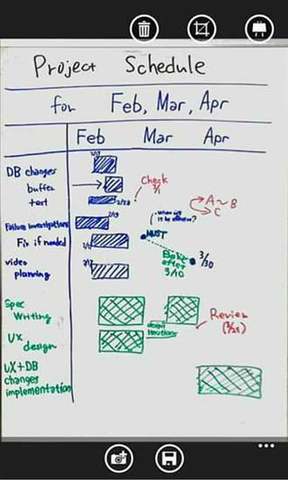 Project Schedule
for Feb, Mar, Apr
Feb Mar Apr
DB changes
buffer
test
Check
A~B
C
Failure investigations
Fix if needed
MUST
3/30
video
planning
3/10
Spec
Writing
Review
UX
design
UX+DB
changes
implementation